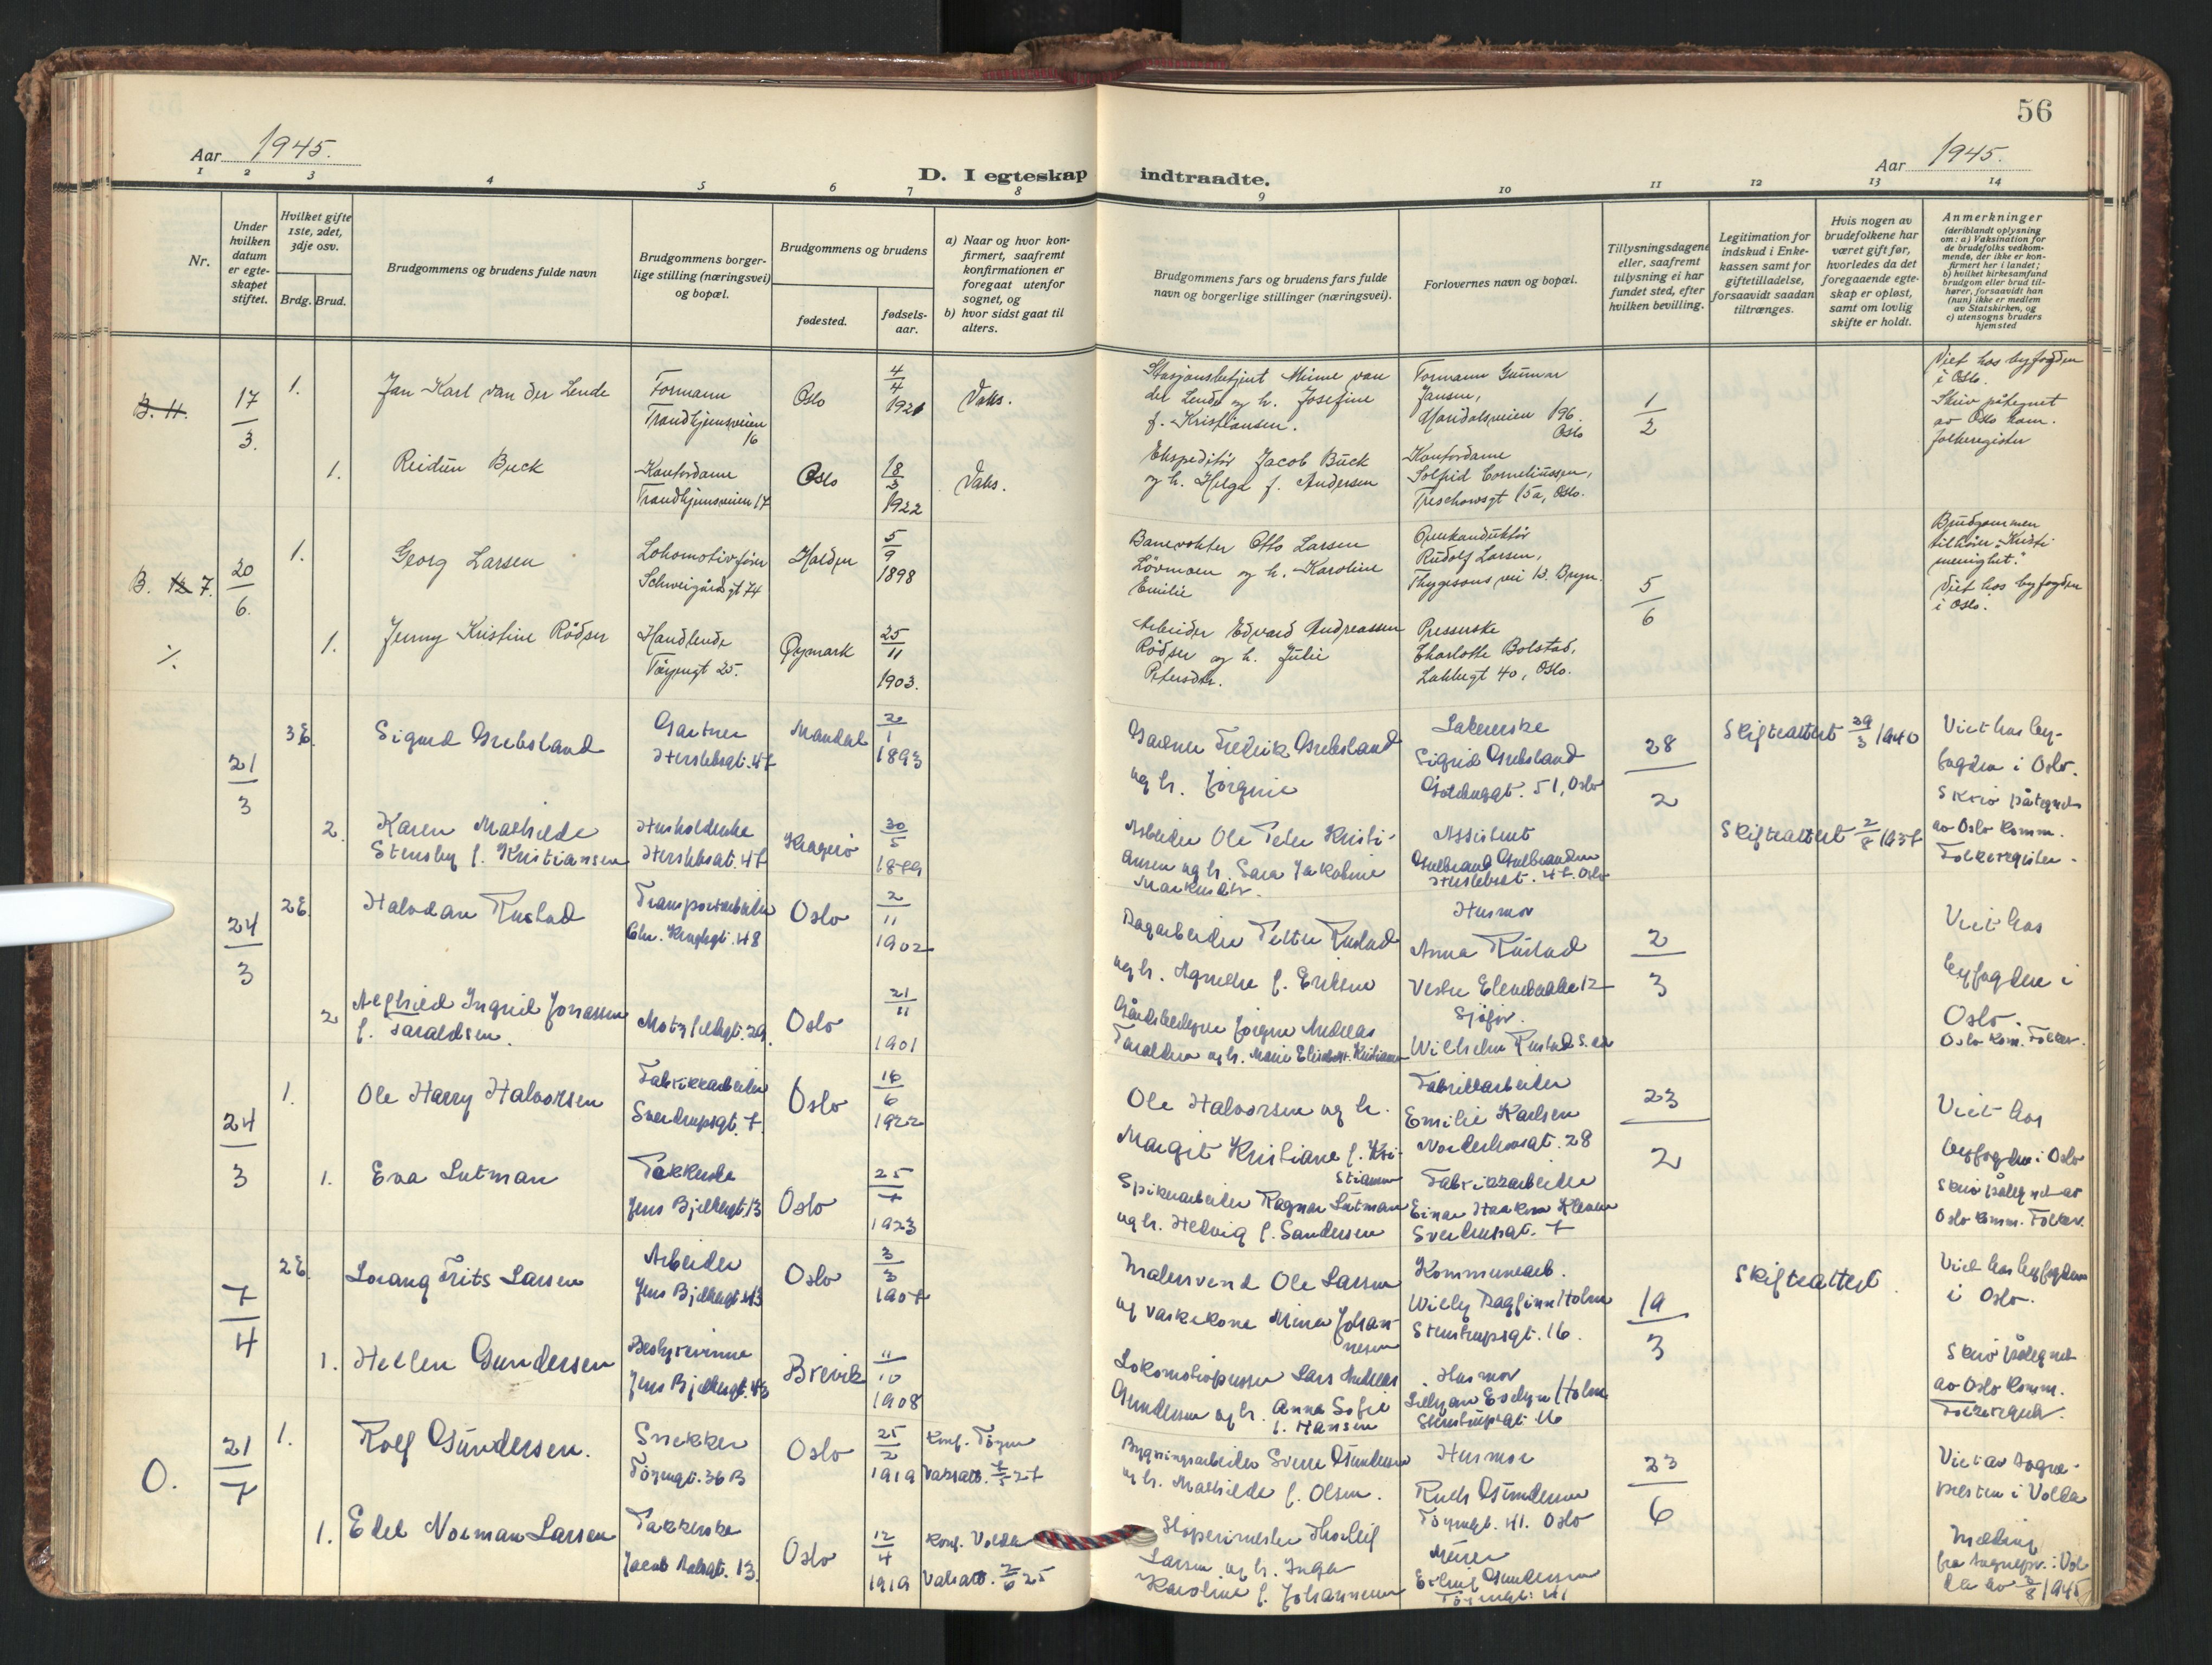 56
Aar 1945.
Aar 1945.
D. I egteskap indtraadte.
1 2 3 4 5 6 7 8 9 10 11 12 13 14
Nr.
Under
hvilken
datum
er egte-
skapet
stiftet.
Hvilket gifte
1ste, 2det,
3dje osv.
Brdg. Brud.
Brudgommens og brudens fulde navn
Brudgommens borger-
lige stilling (næringsvei)
og bopæl.
Brudgommens og brudens
fødested.
fødsels-
aar.
a) Naar og hvor kon-
firmert, saafremt
konfirmationen er
foregaat utenfor
sognet, og
b) hvor sidst gaat til
alters.
Brudgommens fars og brudens fars fulde
navn og borgerlige stillinger (næringsvei).
Forlovernes navn og bopæl.
Tillysningsdagene
eller, saafremt
tillysning ei har
fundet sted, efter
hvilken bevilling.
Legitimation for
indskud i Enke-
kassen samt for
giftetilladelse,
forsaavidt saadan
tiltrænges.
Hvis nogen av
brudefolkene har
været gift før,
hvorledes da det
foregaaende egte-
skap er opløst,
samt om lovlig
skifte er holdt.
Anmerkninger
(deriblandt oplysning
om: a) Vaksination for
de brudefolks vedkom-
mende, der ikke er kon-
firmert her i landet;
b) hvilket kirkesamfund
brudgom eller brud til-
hører, forsaavidt han
(hun) ikke er medlem
av Statskirken, og
c) utensogns bruders
hjemsted
B. 11.
17/3.
1.
Jan Karl van der Lende
Formann
Trondhjemsveien
16
Oslo
4/4
1921
Vaks.
Stasjonsbetjent Minne van
der Lende og h. Josefine
f. Kristiansen.
Formann Gunnar
Jansen,
Maridalsveien 196
Oslo
1/2
Viet hos byfogden
i Oslo.
Skriv påtegnet
av Oslo kom.
folkeregister
1.
Reidun Buck
Kontordame
Trondhjemsveien 17
Oslo
18/3
1922
Vaks.
Ekspeditør Jacob Buck
og h. Helga f. Andersen
Kontordame
Solfrid Corneliussen,
Treschowsgt 15a, Oslo.
B. 12 7.
20/6.
1.
Georg Larsen
Lokomotivfører
Schweigårdsgt 74
Halden
5/9
1898
Banevokter Otto Larsen
Lövmoen og h. Karoline
Emilie
Overkonduktør
Rudolf Larsen,
Thygesons vei 13. Bryn.
5/6
Brudgommen
tilhører "Kristi
menighet".
Viet hos byfogden
i Oslo.
1.
Jenny Kristine Rödser
Handlende
Töyengt 25.
Øymark
25/11
1903.
Arbeider Edvard Andreassen
Rödser og h. Julie
Petersdtr.
Presserske
Charlotte Bolstad,
Lakkegt 40, Oslo.
21/3
3E.
Sigurd Grebsland
Gartner
Herslebsgt. 47
Mandal
2/1
1893
Gardner Fredrik Grebsland
og h. Jørgine
Sigrid Grebsland
Götaborggt. 51, Oslo
28/2
Skifteattest 29/3 1940
Viet hos by-
fogden i Oslo.
Skriv påtegnet
av Oslo komm.
Folkeregister.
2.
Karen Mathilde
Stensby f. Kristiansen
Husholderske
Herslebsgt. 47
Kragerö
30/5
1889
Arbeider Ole Peter Kristi-
ansen og h. Sara Jakobine
Markusdtr.
Assistent
Gulbrand Gulbrandsen
Herslebsgt. 47. Oslo
Skifteattest 2/8 1937
24/3
2E.
Halvdan Rustad
Transportarbeider
Chr. Kroghsgt. 48
Oslo
2/11
1902
Dagarbeider Petter Rustad
og h. Agnethe f. Eriksen
Husmor
Anna Rustad
Vestre Elvebakke 12
2/3
Viet hos
byfogden i
Oslo.
Oslo kom. Folker.
2
Alfhild Ingrid Jonassen
f. Taraldsen.
Motzfeldtsgt. 29.
Oslo
21/11
1901
Gårdsbestyrer Jørgen Andreas
Taraldsen og h. Marie Elisabeth Kristiansen
Sjåfør.
Wilhelm Rustad
24/3
1.
Ole Harry Halvorsen
Fabrikkarbeider
Sverdrupsgt. 7.
Oslo
16/6
1922
Ole Halvorsen og h.
Margit Kristiane f. Kri-
stiansen
Fabrikkarbeider
Emilie Karlsen
Norderhovsgt. 28
23/2
Viet hos
byfogden i Oslo
Skriv påtegnet av
Oslo komm. Folker.
1.
Eva Lutman
Pakkerske
Jens Bjelkesgt. 13
Oslo
25/7
1923
Spikerarbeider Ragnar Lutman
og h. Hedvig f. Sandersen
Fabrikkarbeider
Einar Haakon
Sverdrupsgt. 7
7/4
2E.
Lorang Frits Larsen
Arbeider
Jens Bjelkesgt. 43
Oslo
3/3
1907
Malersvend Ole Larsen
og vaskekone Mina Johan-
nesen
Kommunearb.
Willy Dagfinn Holm
Stenstrupsgt. 16.
19/3
Skifteattest.
Viet hos byfogden
i Oslo.
Skriv påtegnet
av Oslo Komm.
Folkeregister.
1.
Hellen Gundersen
Bestyrerinne
Jens Bjelkesgt. 43
Brevik
11/10
1908
Lokomotivpusser Lars Andreas
Gundersen og h. Anna Sofie
f. Hansen
Husmor
Lillyan Evelyn Holm
Stenstrupsgt. 16
O.
21/7
1.
Rolf Gundersen.
Snekker
Töyengt. 36 B
Oslo
25/2
1919
Konf. Töyen
Vaksatt. 27
Bygningsarbeider Sverre Gundersen
og h. Mathilde f. Olsen.
Husmor
Ruth Gundersen
Töyengt. 41. Oslo
23/6
Viet av sogne-
presten i Volda
Melding
fra sognepr. i Vol-
da av 3/8 1945
1.
Edel Norman Larsen
Pakkerske
Jacob Aallsgt. 13.
Oslo
12/4
1919
Konf. Volda
Vaksatt. 2/6 25
Støperimester Thorleif
Larsen og h. Inga
Karoline f. Johannesen
Murer
Erling Gundersen
Töyengt. 41